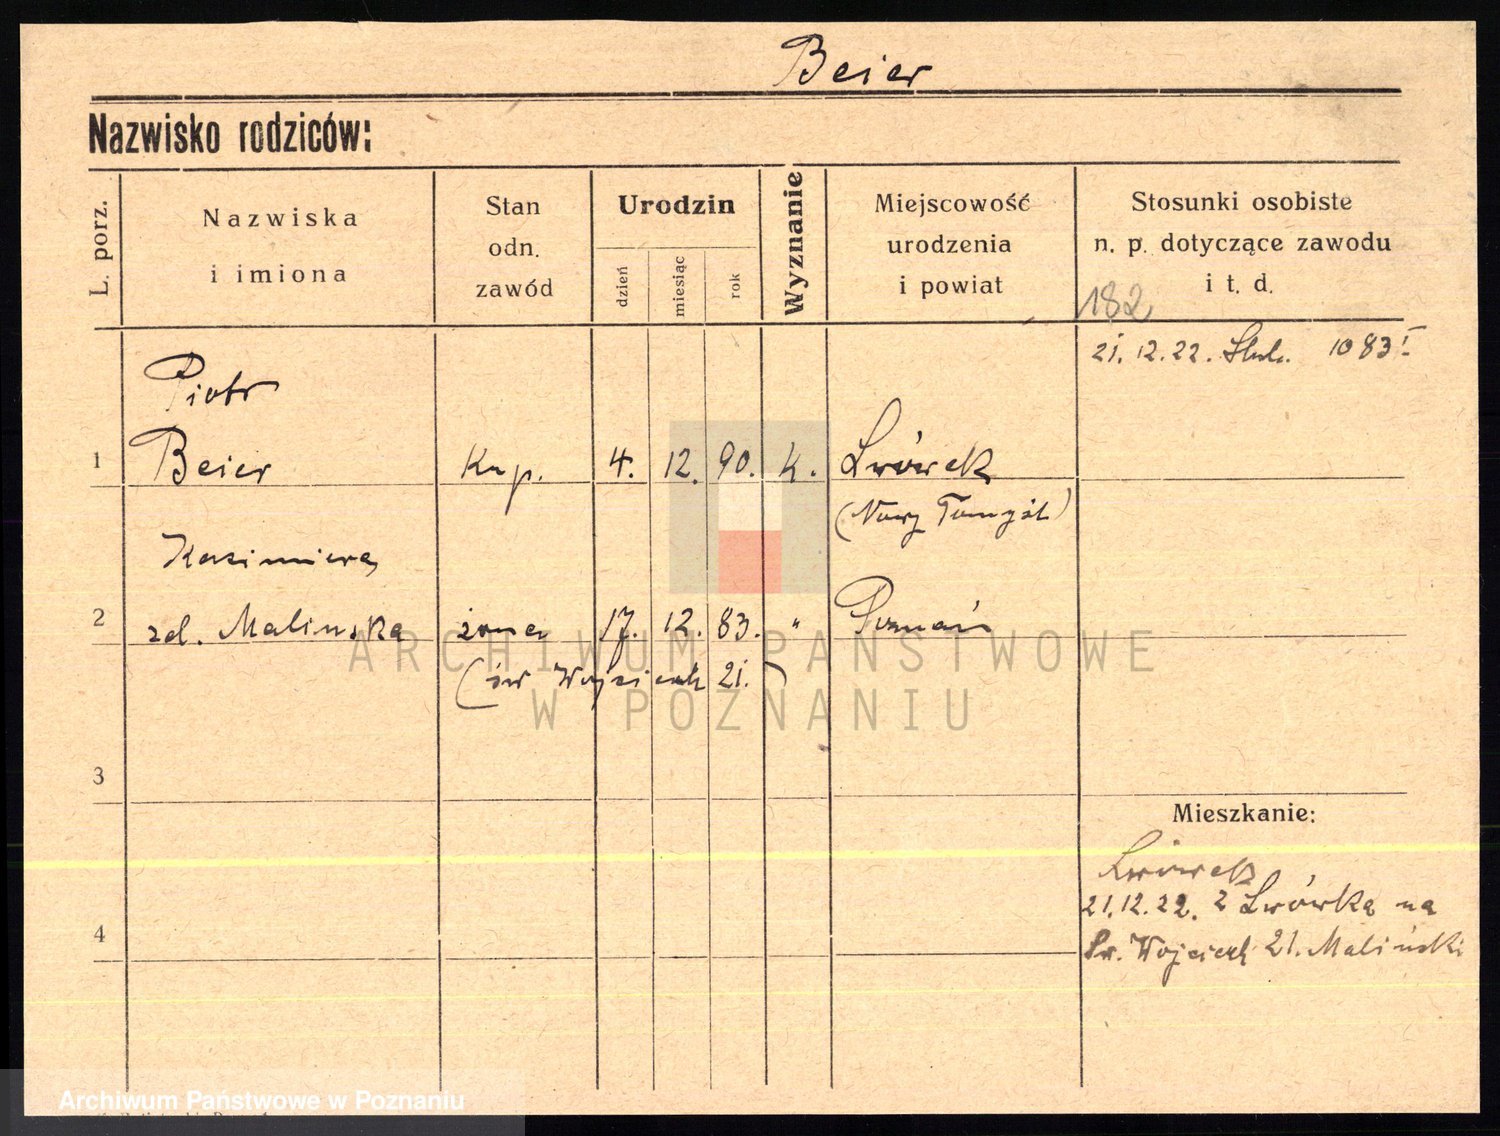 Beier
Nazwisko rodziców:
L. porz.
Nazwiska
i imiona
Stan
odn.
zawód
Urodzin
dzień
miesiąc
rok
Wyznanie
Miejscowość
urodzenia
i powiat
Stosunki osobiste
n. p. dotyczące zawodu
i t. d.
182
21. 12. 22. 1083 I
Piotr
1 Beier Kup. 4. 12. 90. k. Lwówek
(Nowy Tomyśl)
Kazimiera
2 zd. Malinska żona 17. 12. 83. " Poznań
(św Wojciech 21.)
3
Mieszkanie:
Lwówek
21.12.22. z Lwówka na
4
Św. Wojciech 21. Maliński
ARCHIWUM PAŃSTWOWE
W POZNANIU
Archiwum Państwowe w Poznaniu